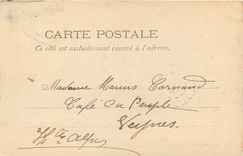 CARTE POSTALE
Ce côté est exclusivement réservé à l'adresse.
Madame
Café du Peuple
Veynes
Htes Alpes